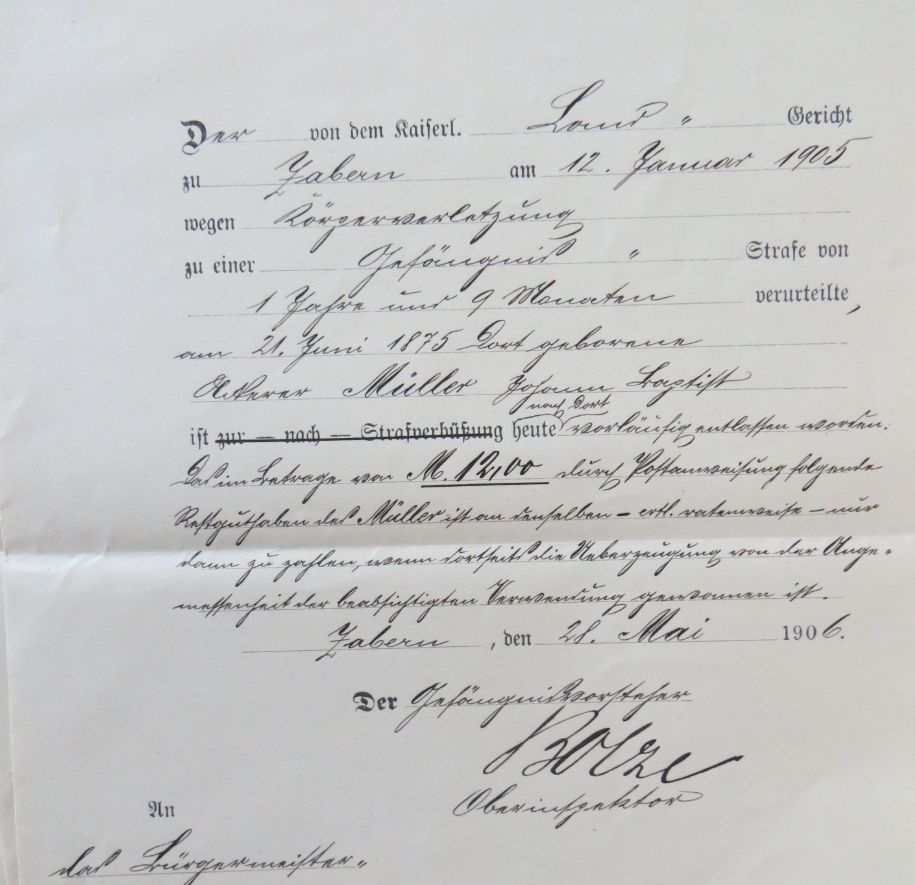 Der von dem Kaiserl. Land „ Gericht
zu Zabern am 12. Januar 1905
wegen Körperverletzung
zu einer Gefängnis „ Strafe von
1 Jahre und 9 Monaten verurteilte,
am 21. Juni 1875 dort geborene
Ackerer Müller Johann Baptist
nach dort
ist zur — nach — Strafverbüßung heute vorläufig entlassen worden.
Das im Betrage von M. 12,00 durch Postanweisung folgende
Restguthaben des Müller ist an denselben – evtl. ratenweise – nur
dann zu zahlen, wenn dortseits die Ueberzeugung von der Ange-
messenheit der beabsichtigten Verwendung gewonnen ist.
Zabern, den 28. Mai 1906.
Der Gefängnisvorsteher
Bolze
Oberinspektor
An
das Bürgermeister-